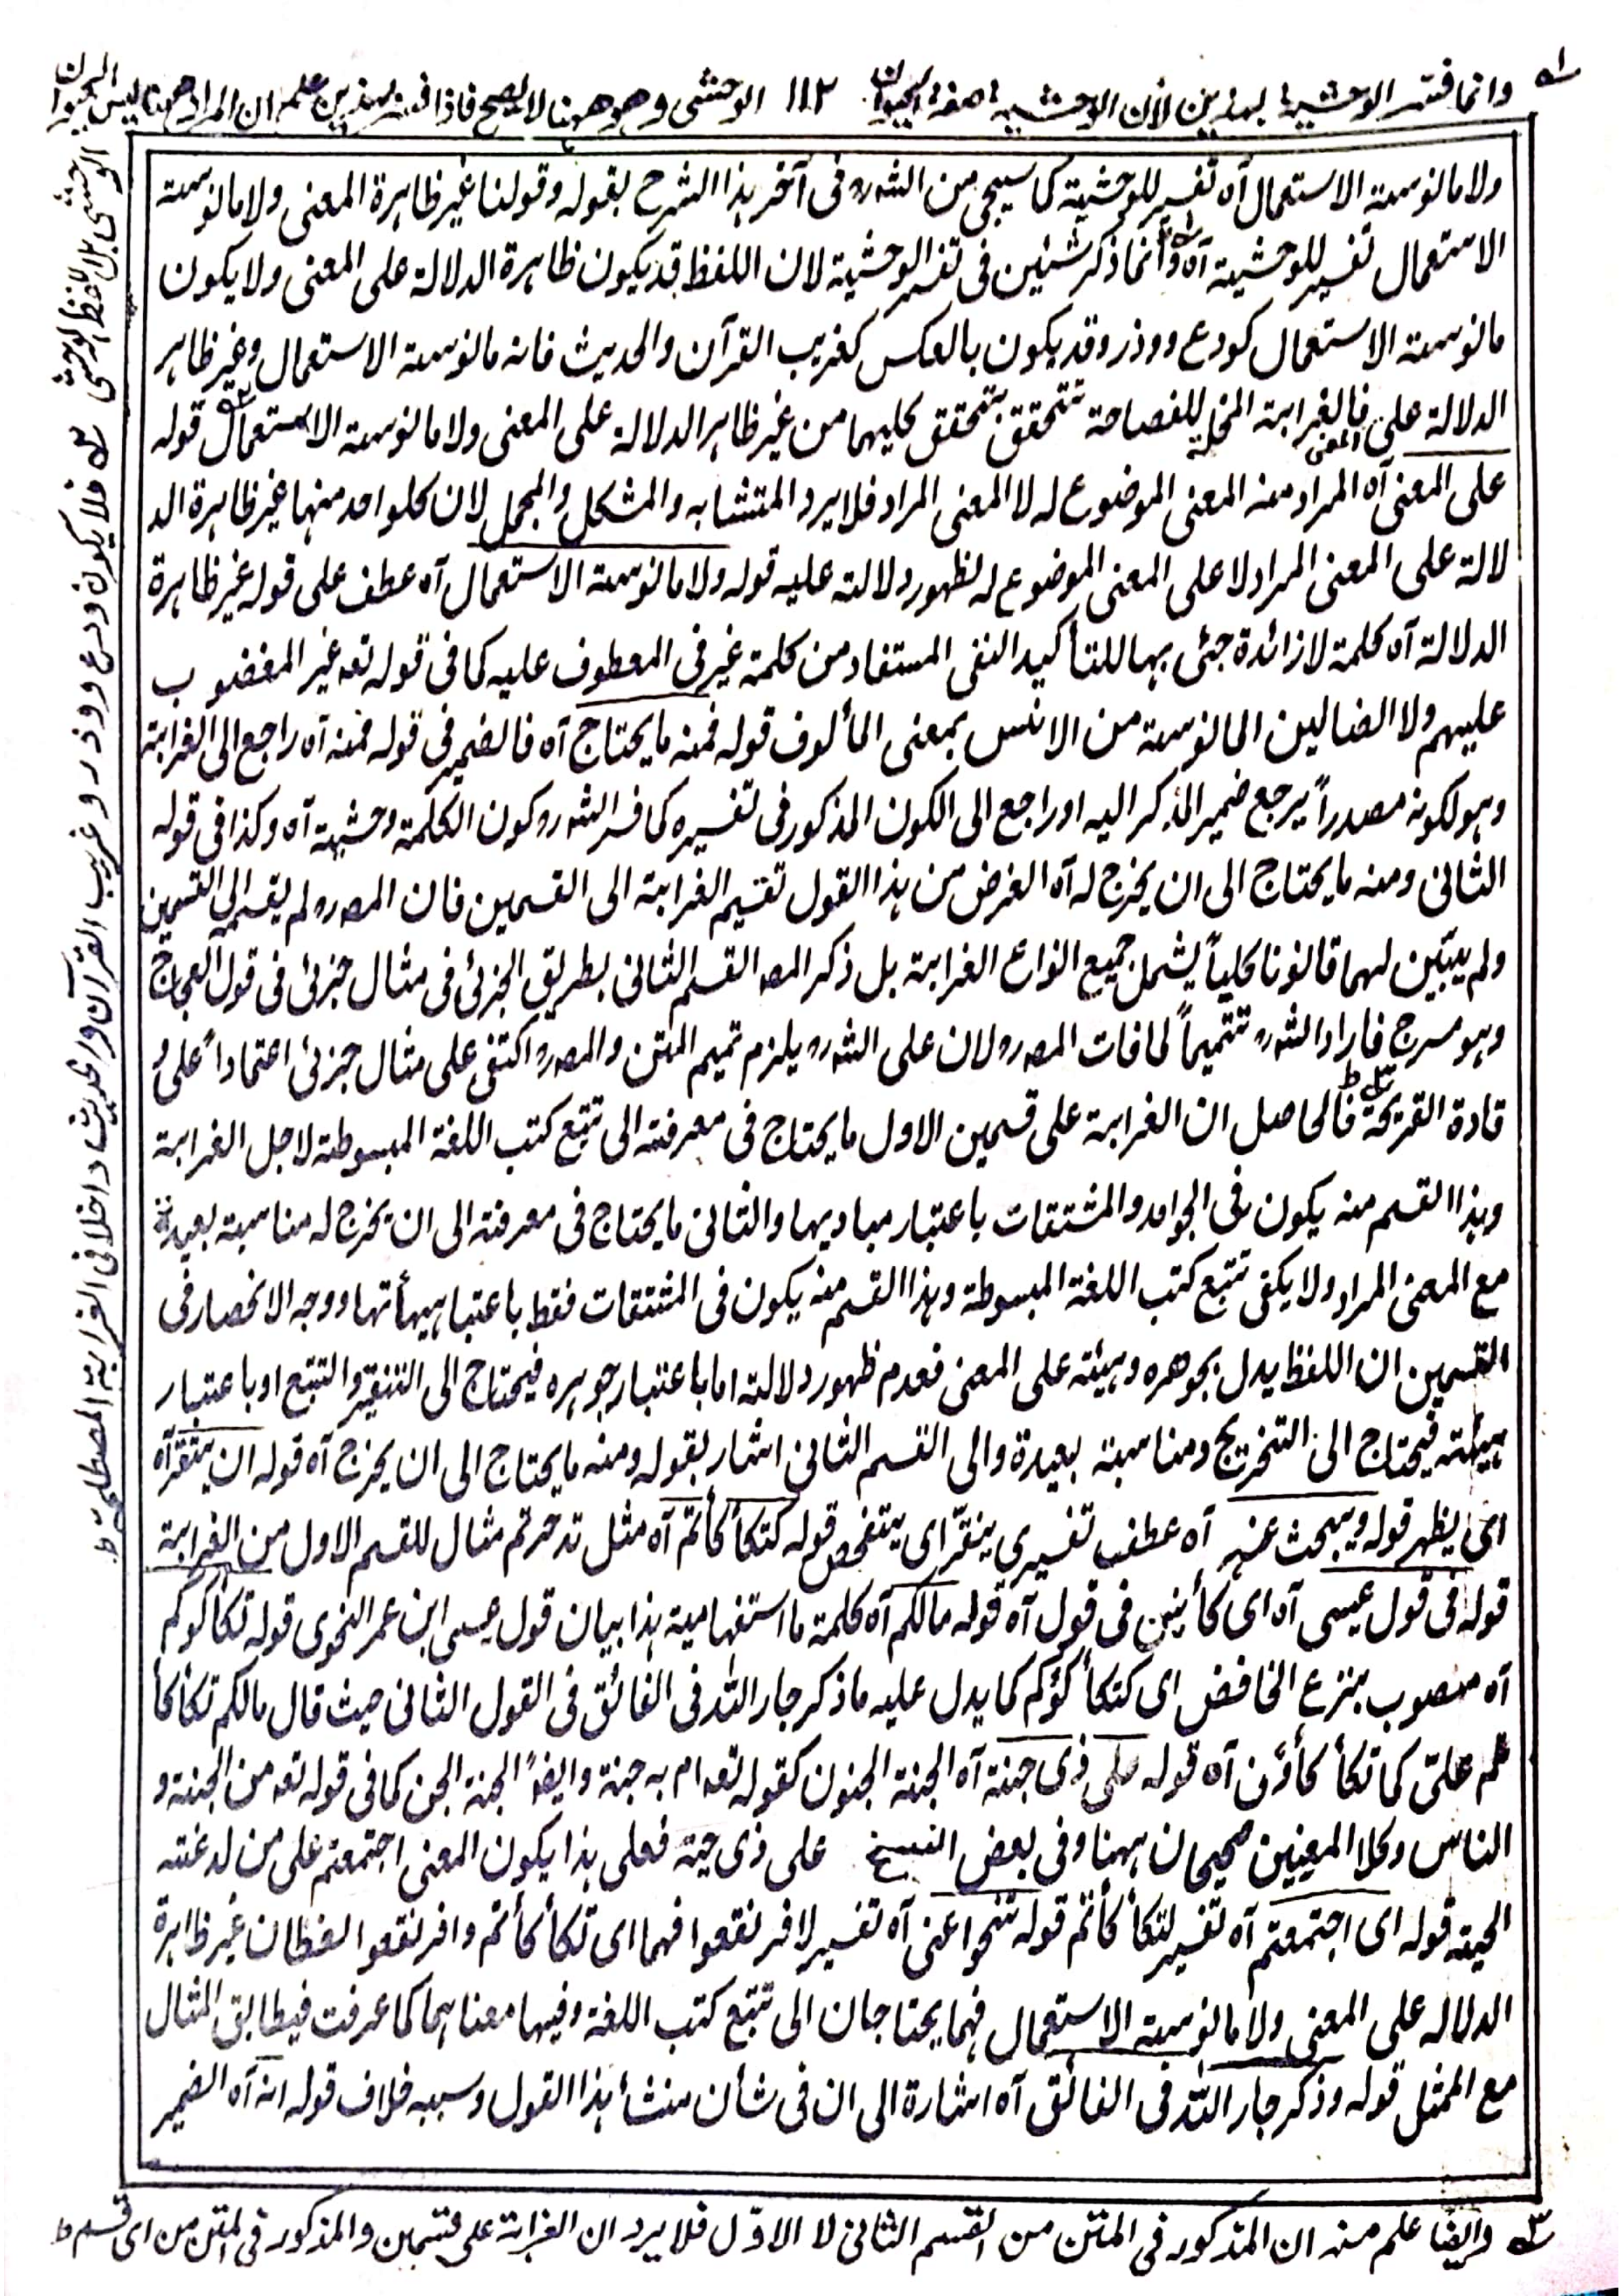 وانما فسر الوحشية بهذين لأن الوحشية صفة الحيوان ١١٢ الوحشى وهو ههنا لا يصح فاذا فسر بهذين علم ان المراد ههنا ليس الحيوان
الوحشى بل اللفظ الوحشى
ولا مانوسة الاستعمال آه تفسير للوحشية كما سيجى من الشرح فى آخر هذا الشرح بقوله وقولنا غير ظاهرة المعنى ولا مانوسة
الاستعمال تفسير للوحشية آه وانما ذكر شئين فى تفسير الوحشية لان اللفظ قد يكون ظاهرة الدلالة على المعنى ولا يكون
مانوسة الاستعمال كودع ووذر وقد يكون بالعكس كغريب القرآن والحديث فانه مانوسة الاستعمال وغير ظاهر
الدلالة على المعنى فالغرابة المخلة للفصاحة تتحقق بتحقق كليهما من غير ظاهر الدلالة على المعنى ولا مانوسة الاستعمال قوله
على المعنى آه المراد منه المعنى الموضوع له لا المعنى المراد فلا يرد المتشابه والمشكل والمجمل لان كلواحد منها غير ظاهرة الد
لالة على المعنى المراد لا على المعنى الموضوع له لظهور دلالته عليه قوله ولا مانوسة الاستعمال آه عطف على قوله غير ظاهرة
الدلالة آه كلمة لا زائدة جئى بها للتأكيد النفى المستفاد من كلمة غير فى المعطوف عليه كما فى قوله تعه غير المغضوب
عليهم ولا الضالين المانوسة من الانس بمعنى المألوف قوله فمنه ما يحتاج آه فالضمير فى قوله فمنه آه راجع الى الغرابة
وهو لكونه مصدراً يرجع ضمير المذكر اليه او راجع الى الكون المذكور فى تفسيره كما فسر الشه رو كون الكلمة وحشية آه وكذا فى قوله
الثانى ومنه ما يحتاج الى ان يخرج له آه الغرض من هذا القول تقسيم الغرابة الى القسمين فان المصه رو لم يقسم الى القسمين
ولم يبيّن لهما قانونا كلياً يشمل جميع انواع الغرابة بل ذكر المصه القسم الثانى بطريق الجزئى فى مثال جزئى فى قول العجاج
وهو مسرج فاراد الشه رو تتميماً لما فات المصه رو لان على الشه رو يلزم تميم المتن والمصه رو اكتفى على مثال جزئى اعتماداً على و
قادة القريحة فالحاصل ان الغرابة على قسمين الاول ما يحتاج فى معرفته الى تتبع كتب اللغة المبسوطة لاجل الغرابة
وهذا القسم منه يكون فى الجوامد والمشتقات باعتبار مباديها والثانى ما يحتاج فى معرفته الى ان يخرج له مناسبة بعيدة
مع المعنى المراد ولا يكفى تتبع كتب اللغة المبسوطة وهذا القسم منه يكون فى المشتقات فقط باعتبا هيهأتها ووجه الانحصار فى
القسمين ان اللفظ يدل بجوهره وهيئته على المعنى فعدم ظهور دلالته اما باعتبار جوهره فيحتاج الى التنقير والتتبع او باعتبار
هيئته فيحتاج الى التخريج ومناسبة بعيدة والى القسم الثانى اشار بقوله ومنه ما يحتاج الى ان يخرج آه قوله ان ينقرآه
اى يظهر قوله ويبحث عنه آه عطف تفسيرى ينقرّ اى يتفحص قوله كتكأ كأتم آه مثل تدحرتم مثال للقسم الاول من الغرابة
قوله فى قول عيسى آه اى كأينين فى قول آه قوله مالكم آه كلمة ما استفهامية هذا بيان قول عيسى ابن عمر النحوى قوله تكأكوكم
آه منصوب بنزع الخافض اى كتكأ كؤكم كما يدل عليه ما ذكر جار اللّٰه فى الفائق فى القول الثانى حيث قال مالكم تكأ كأ
تم علىّ كما تكأ كأؤن آه قوله على ذى جنة آه الجنة الجنون كقوله تعه ام به جنة وايضاً الجنة الجن كما فى قوله تعه من الجنة و
الناس وكلا المعينين صحيحان ههنا وفى بعض النسخ على ذى حية فعلى هذا يكون المعنى اجتمعتم على من لدغته
الحية قوله اى اجتمعتم آه تفسير لتكأ كأتم قوله تنحوا عنى آه تفسير لافرنقعوا فهما اى تكأ كأتم وافرنقعوا لفظان غير ظاهرة
الدلاله على المعنى ولا مانوسة الاستعمال فهما يحتاجان الى تتبع كتب اللغة وفيها معناهما كما عرفت فيطابق المثال
مع الممثل قوله وذكر جار اللّٰه فى الفائق آه اشارة الى ان فى شأن منشأ هذا القول وسببه خلاف قوله انه آه الضمير
فلا يكون ودع ووذر وغريب القرآن والحديث داخلا فى الغرابة المصطلحة ط
وايضا علم منه ان المذكور فى المتن من القسم الثانى لا الاوّل فلا يرد ان الغرابة على قسمين والمذكور فى المتن من اى قسم ط